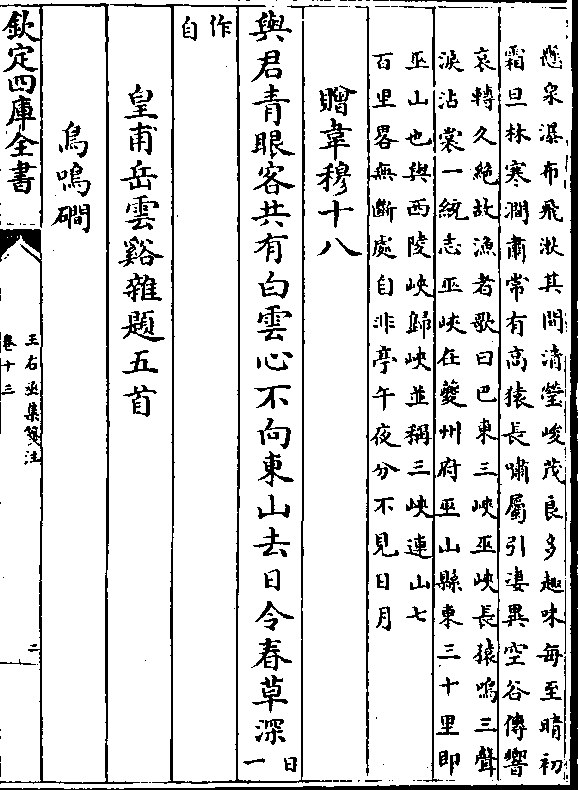 懸泉瀑布飛潄其間清瑩峻茂良多趣味每至晴初
霜旦林寒澗肅常有高猿長嘯屬引淒異空谷傳響
哀轉久絶故漁者歌曰巴東三峽巫峽長猿鳴三聲
淚沾裳一統志巫峽在夔州府巫山縣東三十里即
巫山也與西陵峽歸峽並稱三峽連山七
百里畧無斷處自非亭午夜分不見日月
贈韋穆十八
與君青眼客共有白雲心不向東山去日令春草深日一
作自
皇甫岳雲谿雜題五首
鳥鳴磵
欽定四庫全書
王右丞集箋注
卷十三
二